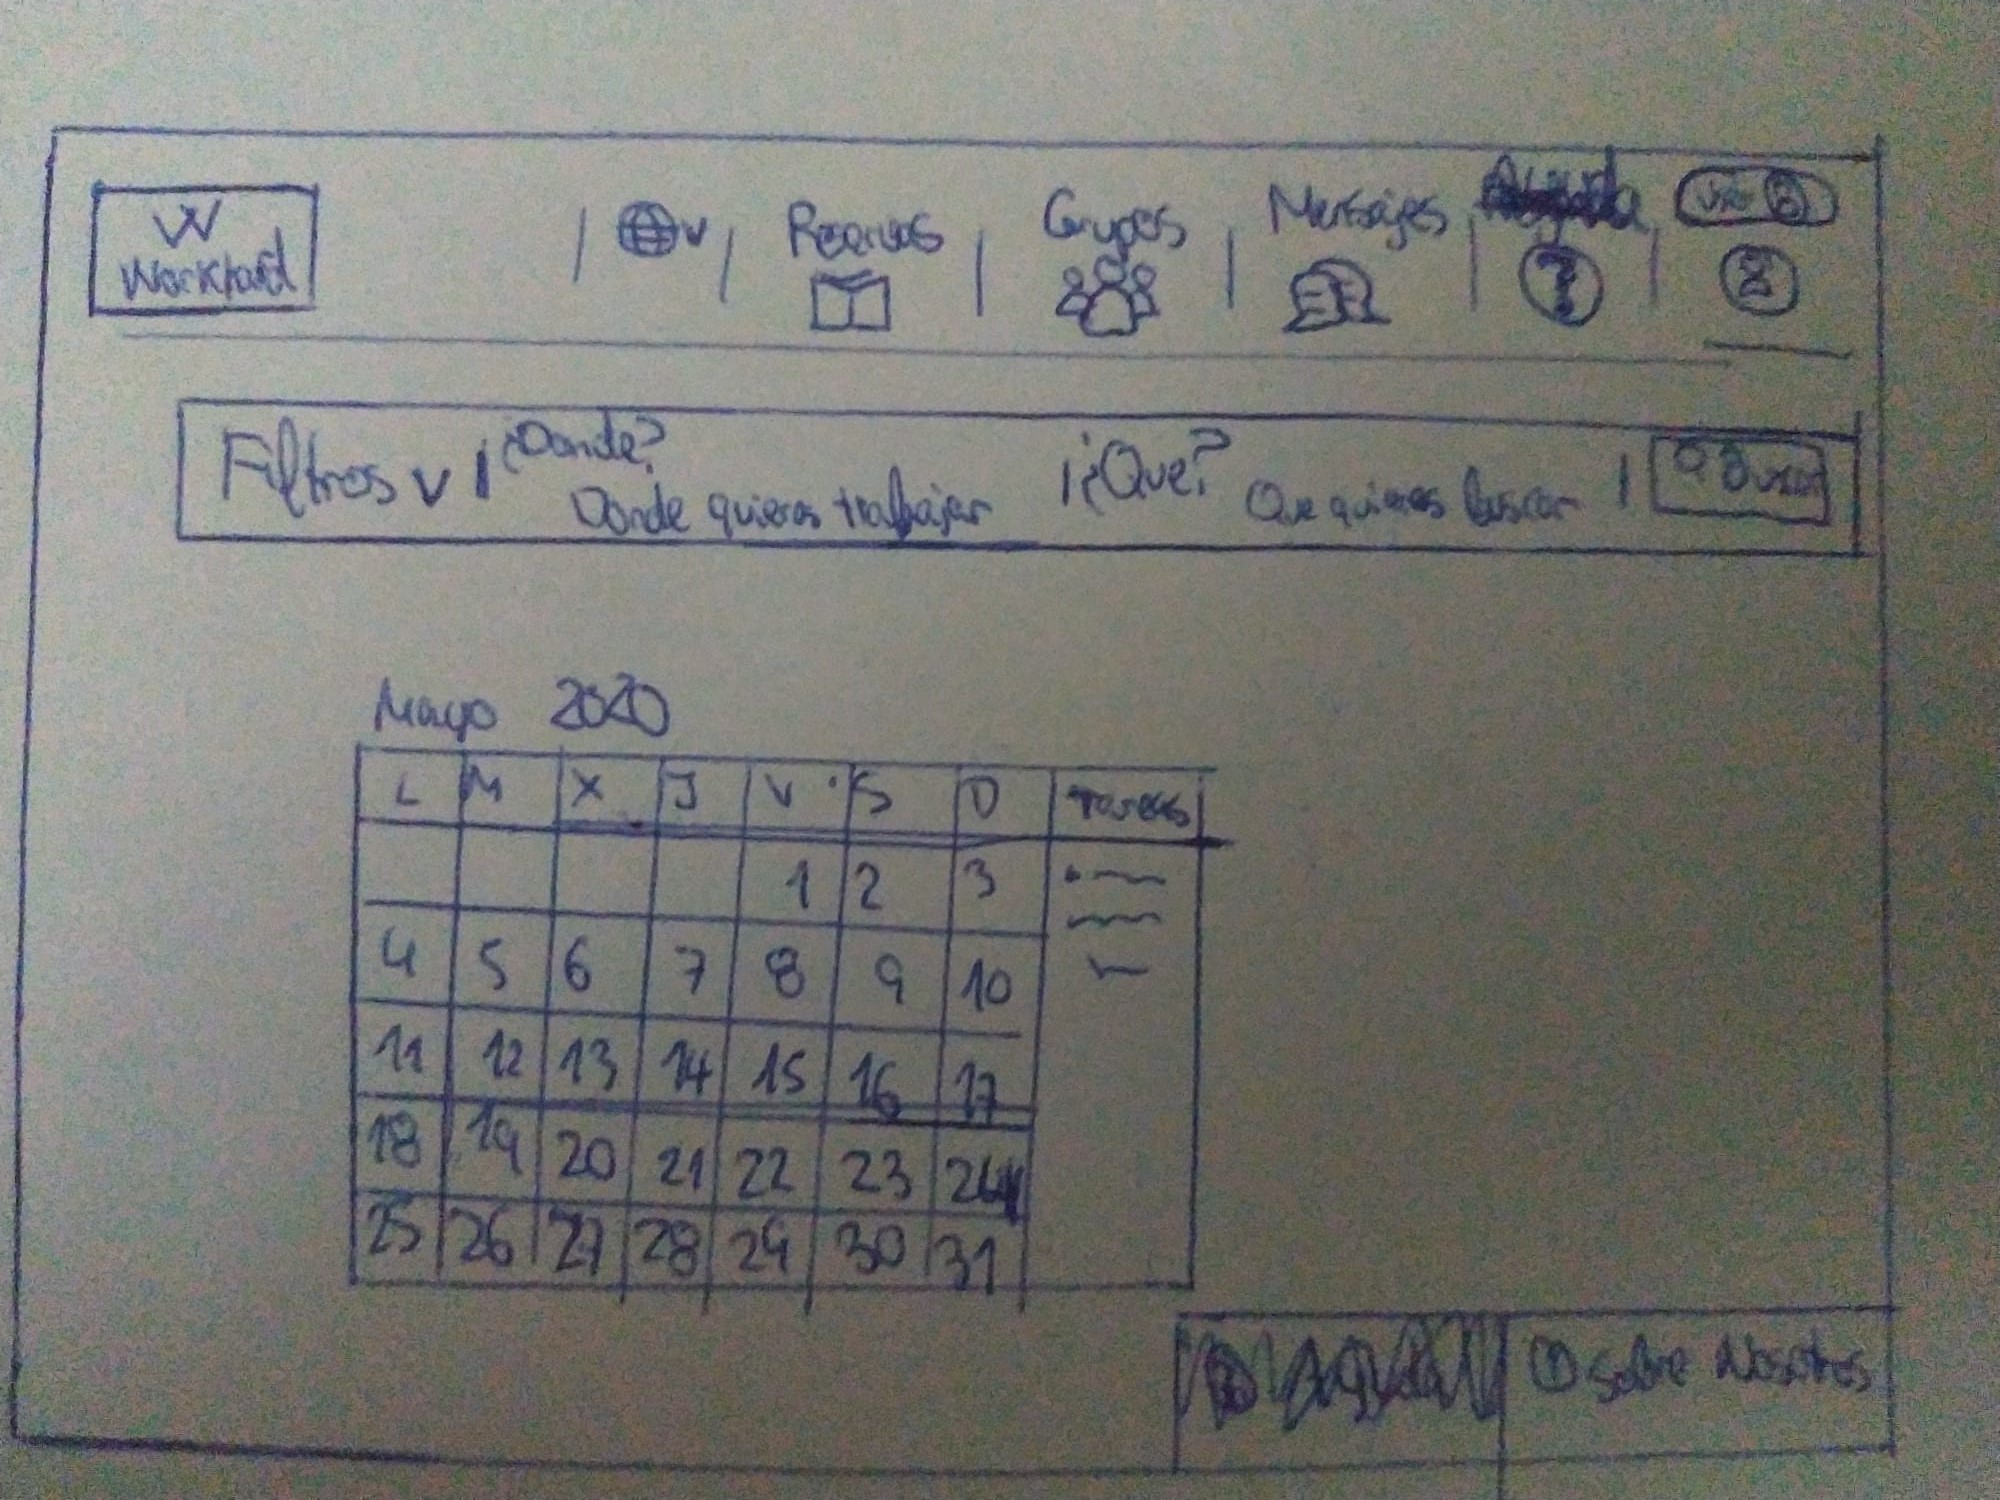 W
Reservas
Grupos
Mensajes
?
Filtros v | ¿Donde? Donde quieras trabajar | ¿Que? Que quieres buscar | Buscar
Mayo 2020
L M X J V S D Tareas
1 2 3
4 5 6 7 8 9 10
11 12 13 14 15 16 17
18 19 20 21 22 23 24
25 26 27 28 29 30 31
Sobre Nosotros